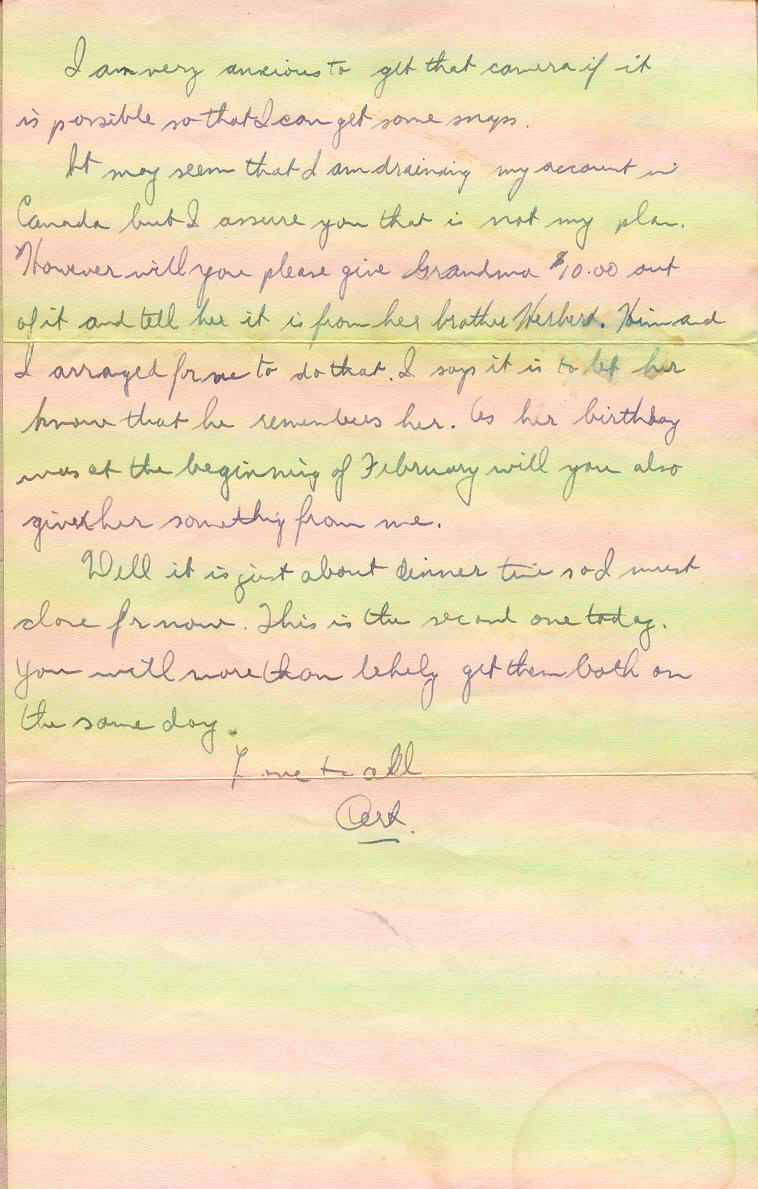 I am very anxious to get that camera if it
is possible so that I can get some snaps.
It may seem that I am draining my account in
Canada but I assure you that is not my plan.
However will you please give Grandma $10.00 out
of it and tell her it is from her brother Herbert. Him and
I arraged for me to do that. I says it is to let her
know that he remembers her. As her birthday
was at the beginning of February will you also
give her something from me.
Well it is just about dinner time so I must
close for now. This is the second one today.
You will more than likely get them both on
the same day.
Love to all
Art.